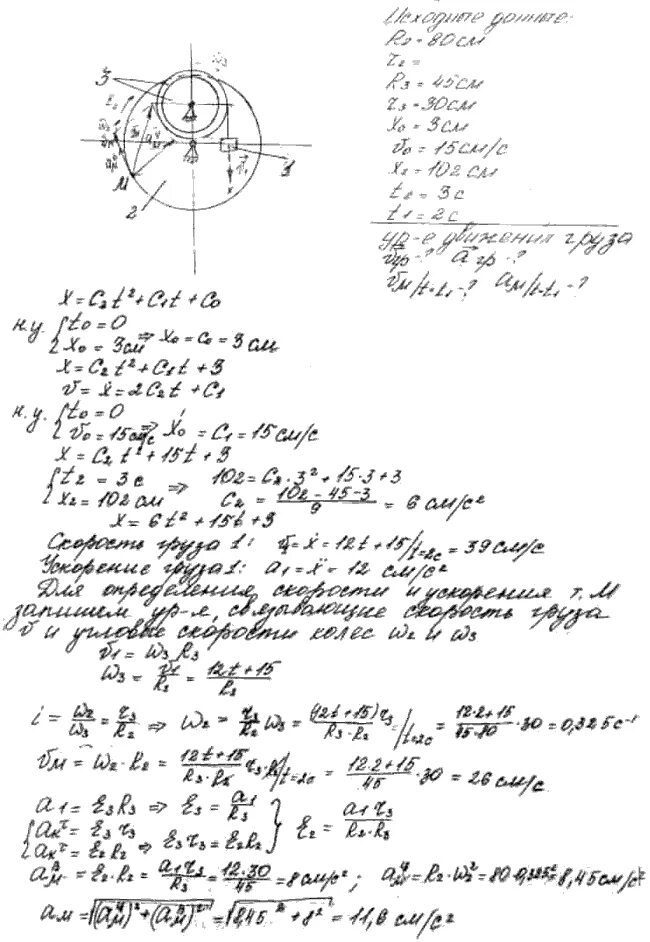 Исходные данные:
R2 = 80 см
r2 =
R3 = 45 см
r3 = 30 см
x0 = 3 см
v0 = 15 см/с
x2 = 102 см
t2 = 3 с
t1 = 2 с
ур-е движения груза
vгр - ? aгр - ?
vм/t=t1 - ? aм/t=t1 - ?
3
M
2
1
x
x = C2t² + C1t + C0
н.у. { t0 = 0
{ x0 = 3 см ⇒ x0 = C0 = 3 см
x = C2t² + C1t + 3
v = ẋ = 2C2t + C1
н.у. { t0 = 0
{ v0 = 15 см/с ⇒ ẋ0 = C1 = 15 см/с
x = C2t² + 15t + 3
{ t2 = 3 с
{ x2 = 102 см ⇒ 102 = C2·3² + 15·3 + 3
C2 = (102 - 45 - 3)/9 = 6 см/с²
x = 6t² + 15t + 3
Скорость груза 1: v1 = ẋ = 12t + 15/t=2с = 39 см/с
Ускорение груза 1: a1 = ẍ = 12 см/с²
Для определения скорости и ускорения т. М
запишем ур-я, связывающие скорость груза
v и угловые скорости колес ω2 и ω3
v1 = ω3 R3
ω3 = v1/R3 = (12t + 15)/R3
i = ω2/ω3 = r3/R2 ⇒ ω2 = r3/R2 ω3 = (12t + 15)r3/(R3·R2) /t=2c = (12·2 + 15)/(45·80)·30 = 0,325 с⁻¹
vм = ω2·R2 = (12t + 15)/(R3·R2) r3·R2/t=2c = (12·2 + 15)/45·30 = 26 см/с
a1 = ε3R3 ⇒ ε3 = a1/R3
{ aкτ = ε3 r3
{ aкτ = ε2R2 ⇒ ε3r3 = ε2R2 } ε2 = a1r3/(R2·R3)
aмв = ε2·R2 = a1r3/R3 = 12·30/45 = 8 см/с²; aмц = R2·ω2² = 80·0,325² = 8,45 см/с²
aм = √((aмц)² + (aмв)²) = √(8,45² + 8²) = 11,6 см/с²